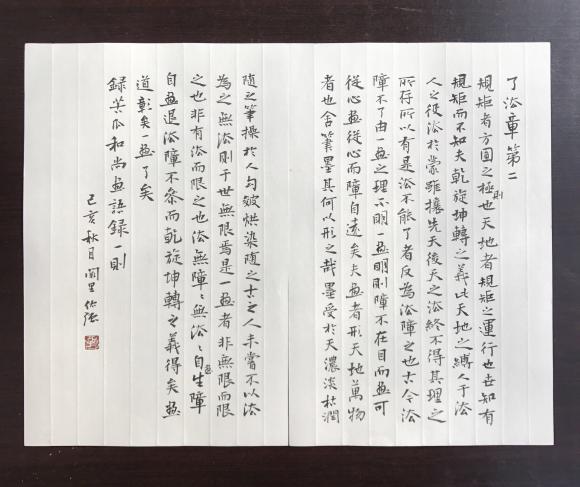 了法章第二
規矩者方圓之極則也天地者規矩之運行也世知有
規矩而不知夫乾旋坤轉之義此天地之縛人于法
人之役法於蒙雖攘先天後天之法終不得其理之
所存所以有是法不能了者反為法障之也古今法
障不了由一畫之理不明一畫明則障不在目而畫可
從心畫從心而障自遠矣夫畫者形天地萬物
者也舍筆墨其何以形之哉墨受於天濃淡枯潤
隨之筆操於人勾皴烘染隨之古之人未嘗不以法
為之無法則于世無限焉是一畫者非無限而限
之也非有法而限之也法無障々無法々自畫生障
自畫退法障不參而乾旋坤轉之義得矣畫
道彰矣一畫了矣
錄苦瓜和尚畫語錄一則
己亥秋月